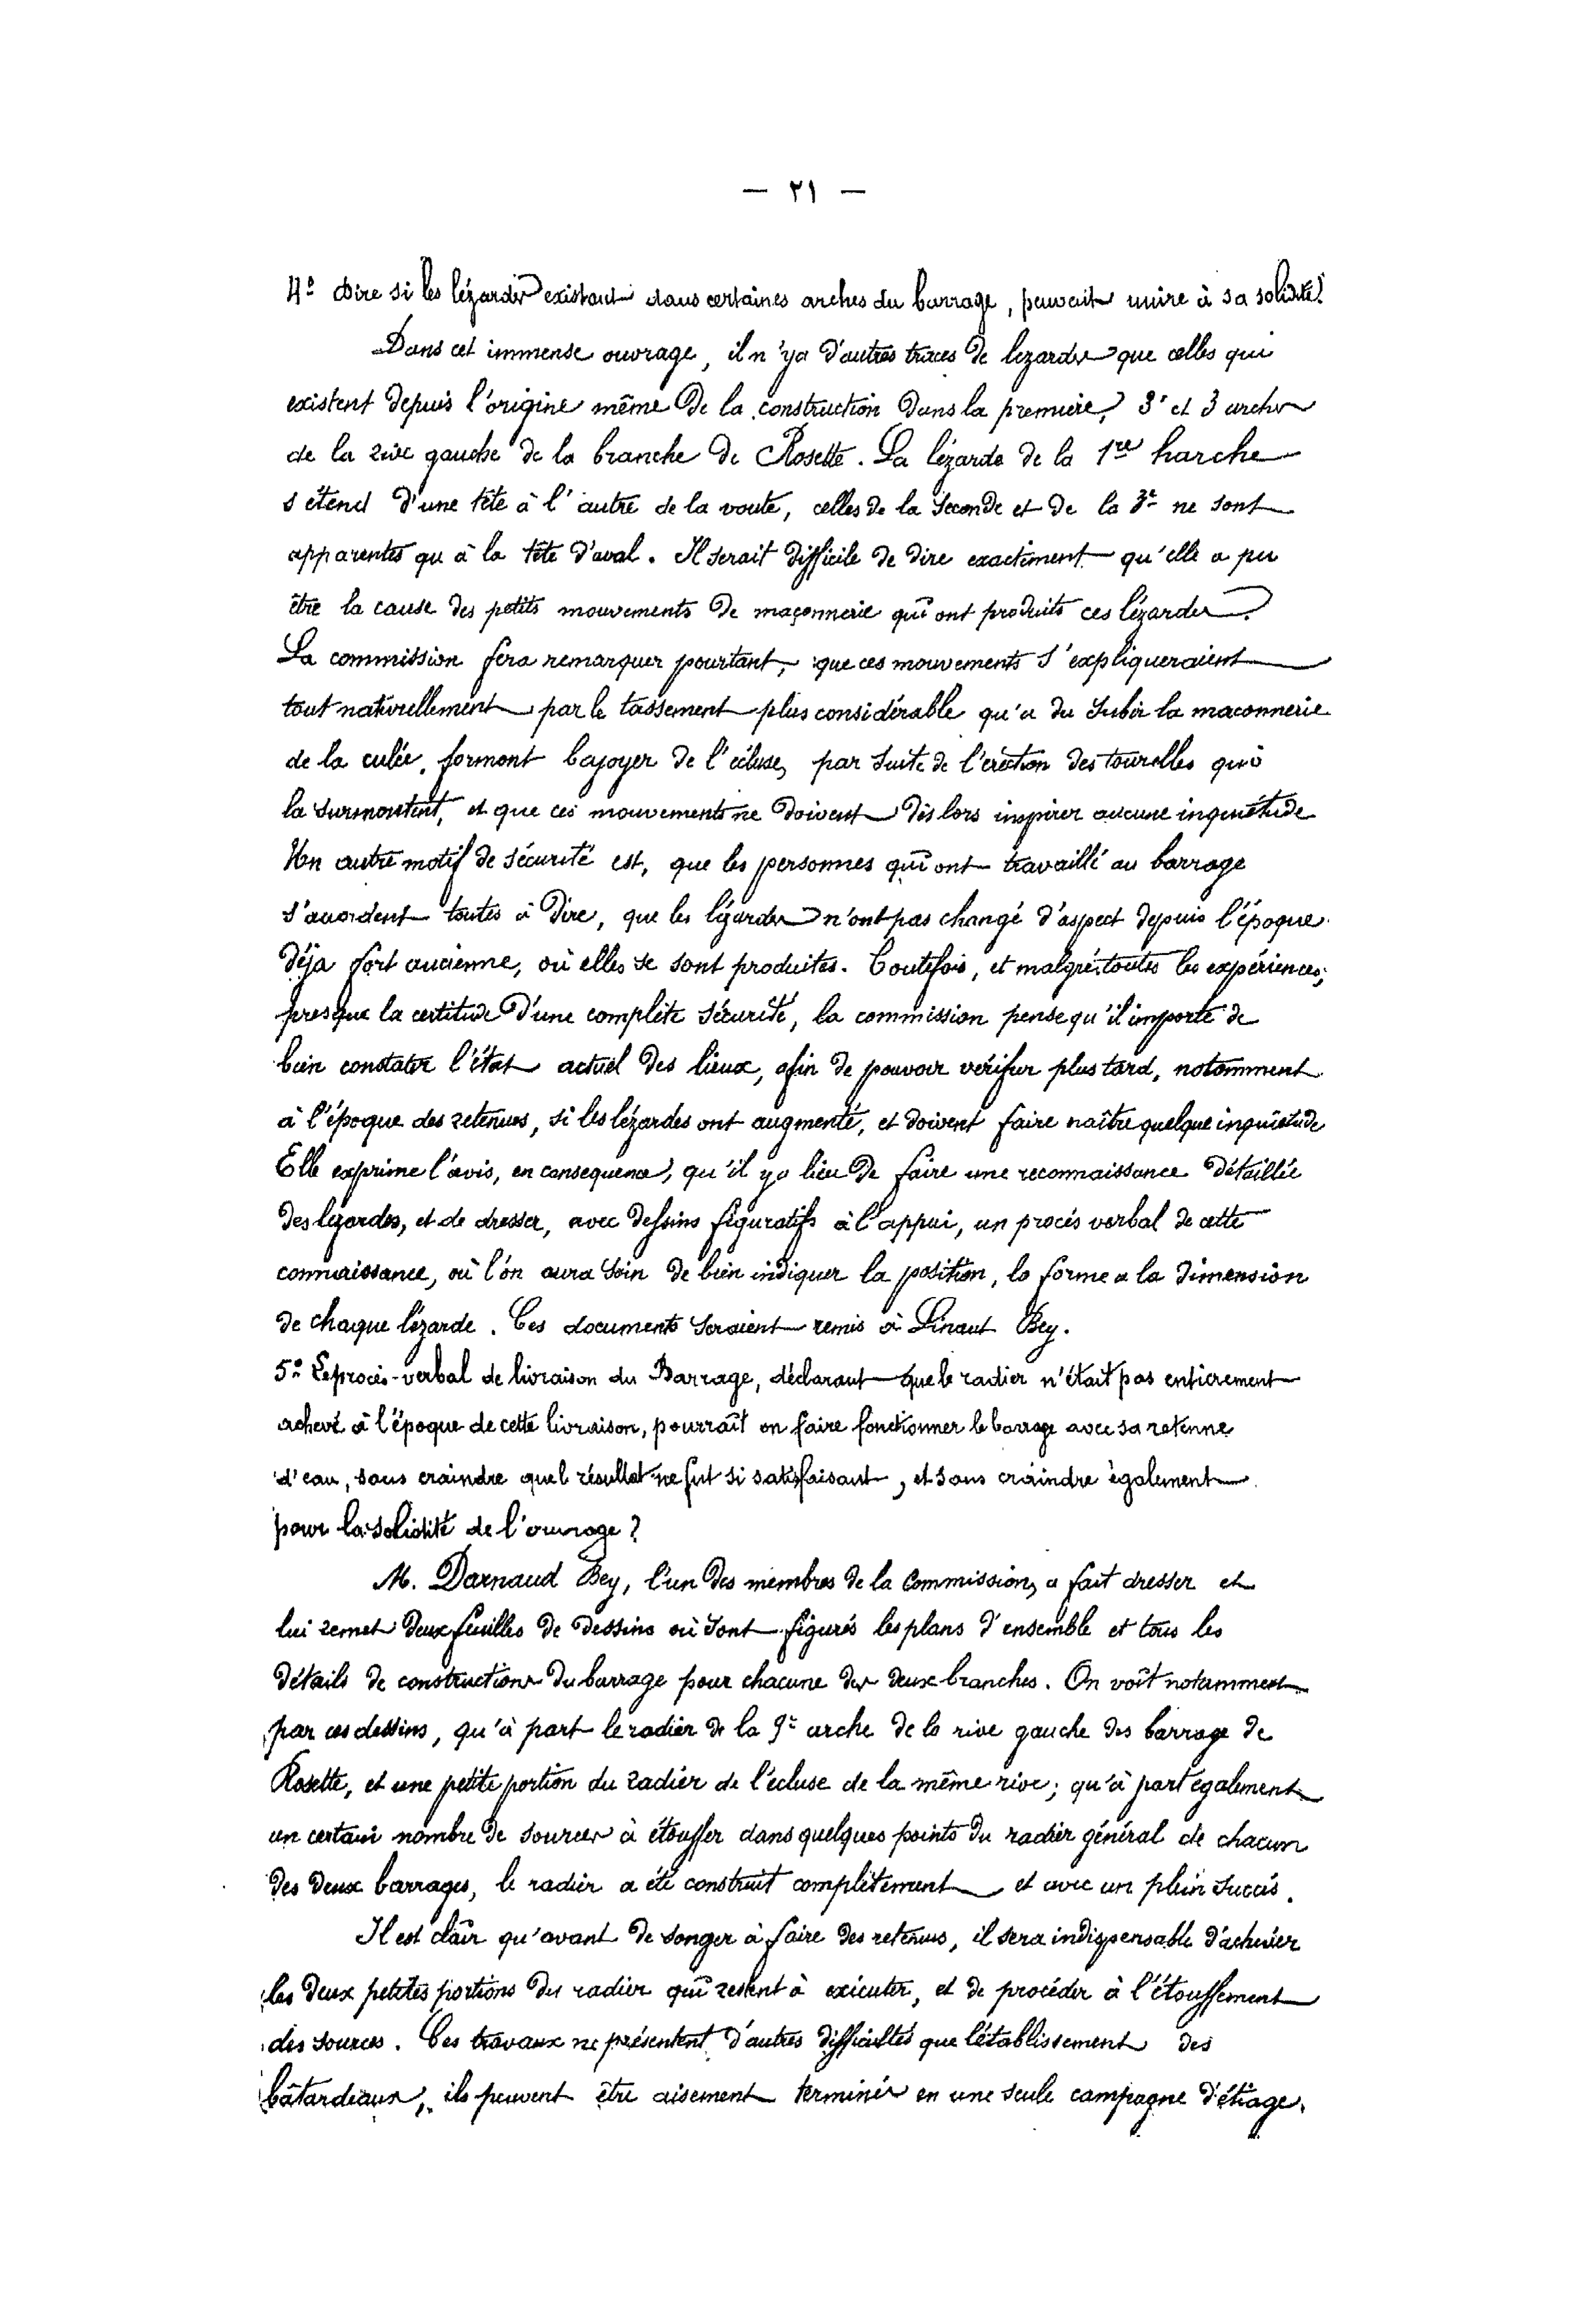 — ٢١ —
4° Dire si les lézardes existant dans certaines arches du barrage, peuvait nuire à sa solidité?
Dans cet immense ouvrage, il n'y a d'autres traces de lezardes que celles qui
existent depuis l'origine même de la construction dans la première, 3e et 3 arches
de la rive gauche de la branche de Rosette. La lézarde de la 1re harche
s'étend d'une tête à l'autre de la voute, celles de la seconde et de la 3e ne sont
apparentes qu'à la tête d'aval. Il serait difficile de dire exactement qu'elle a pu
être la cause des petits mouvements de maçonnerie qui ont produits ces lézardes.
La commission fera remarquer pourtant, que ces mouvements s'expliqueraient
tout naturellement par le tassement plus considérable qu'a du subir la maconnerie
de la culée, formont bajoyer de l'écluse, par suite de l'erection des tourelles qui
la surmontent, et que ces mouvements ne doivent dès lors inspirer aucune inquiétude
Un autre motif de sécurité est, que les personnes qui ont travaillé au barrage
s'accordent toutes à dire, que les lézardes n'ont pas changé d'aspect depuis l'époque
déja fort ancienne, où elles se sont produites. Toutefois, et malgré toutes les expériences,
presque la certitude d'une complète sécurité, la commission pense qu'il importe de
bien constater l'état actuel des lieux, afin de pouvoir vérifier plus tard, notamment
à l'époque des retenues, si les lézardes ont augmenté, et doivent faire naître quelque inquiétude
Elle exprime l'avis, en consequence, qu'il y a lieu de faire une reconnaissance détaillée
des lezardes, et de dresser, avec dessins figuratifs à l'appui, un procès verbal de cette
connaissance, où l'on aura soin de bien indiquer la position, la forme a la dimension
de chaque lézarde. Ces documents seraient remis à Linant Bey.
5° Le procès-verbal de livraison du Barrage, déclarant que le radier n'était pas entierement
achevé à l'époque de cette livraison, pourraît on faire fonctionner le barrage avec sa retenue
d'eau, sans craindre que l résultat ne fut si satisfaisant, et sans craindre également
pour la solidité de l'ouvrage?
M. Darnaud Bey, l'un des membres de la Commission, a fait dresser et
lui remet deux feuilles de dessins où sont figurés les plans d'ensemble et tous les
détails de constructions du barrage pour chacune des deux branches. On voît notamment
par ces dessins, qu'à part le radier de la 9e arche de la rive gauche des barrage de
Rosette, et une petite portion du radier de l'écluse de la même rive; qu'à part egalement
un certain nombre de sources à étouffer dans quelques points du radier général de chacun
des deux barrages, le radier a été construit complètement et avec un plein succès.
Il est clair qu'avant de songer à faire des retenues, il sera indispensable d'achever
les deux petites portions du radier qui restent à exécuter, et de procéder à l'étouffement
des sources. Ces travaux ne présentent d'autres difficultés que l'établissement des
bâtardeaux, ils peuvent être aisement terminés en une seule campagne d'étiage.